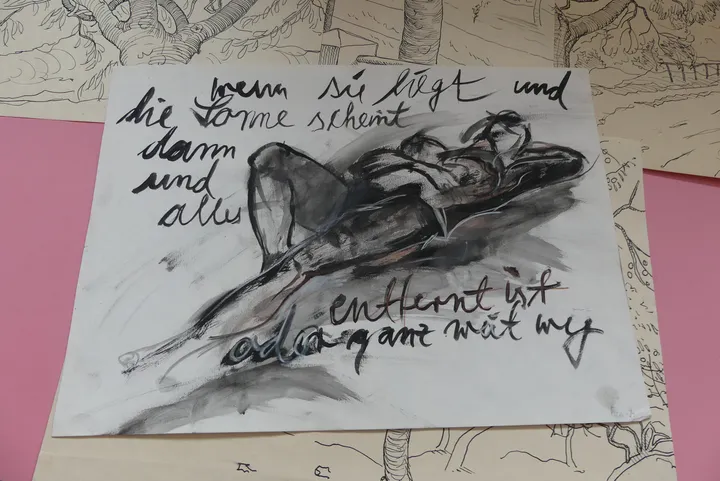 wenn sie liegt und
die Sonne scheint
dann
und
alles
entfernt ist
oder ganz weit weg